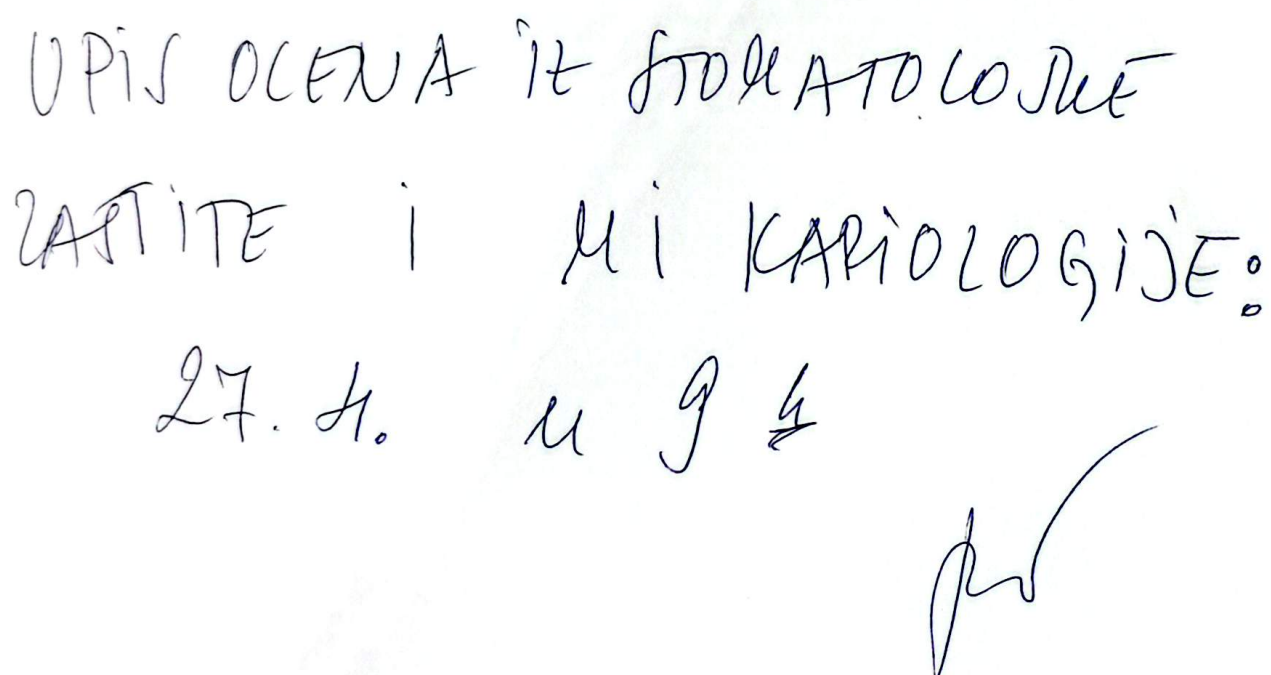 UPIS OCENA IZ STOMATOLOSKE
ZASTITE I MI KARIOLOGIJE:
27. 4. u 9 h